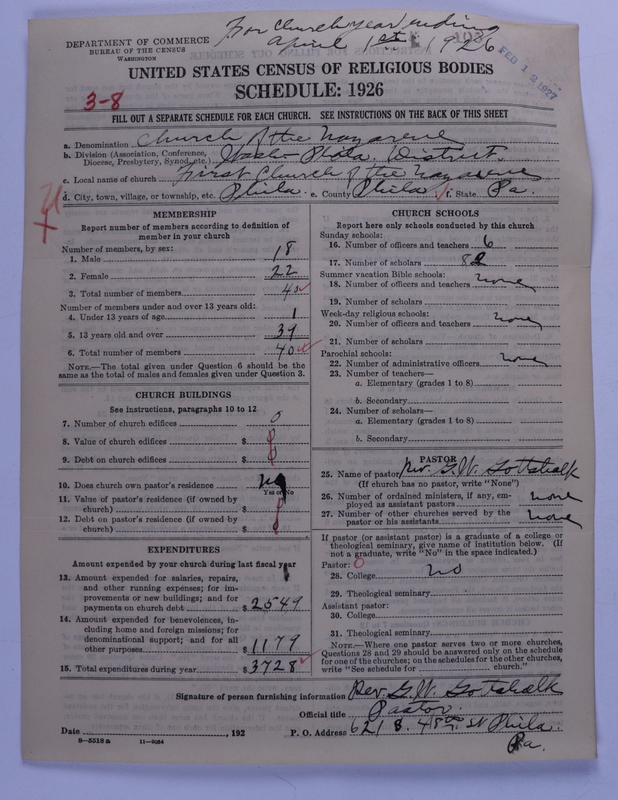 For Church year ending
April 1st 1926
DEPARTMENT OF COMMERCE
BUREAU OF THE CENSUS
WASHINGTON
FEB 12 1927
UNITED STATES CENSUS OF RELIGIOUS BODIES
SCHEDULE: 1926
3-8
FILL OUT A SEPARATE SCHEDULE FOR EACH CHURCH. SEE INSTRUCTIONS ON THE BACK OF THIS SHEET
a. Denomination Church of the Nazarene
b. Division (Association, Conference, Diocese, Presbytery, Synod, etc.) Wash-Phila. District.
c. Local name of church First Church of the Nazarene
d. City, town, village, or township, etc. Phila. e. County Phila f. State Pa.
MEMBERSHIP
Report number of members according to definition of
member in your church
Number of members, by sex:
1. Male 18
2. Female 22
3. Total number of members 40
Number of members under and over 13 years old:
4. Under 13 years of age 1
5. 13 years old and over 39
6. Total number of members 40
NOTE.—The total given under Question 6 should be
same as the total of males and females given under Question 3.
CHURCH BUILDINGS
See instructions, paragraphs 10 to 12
7. Number of church edifices 0
8. Value of church edifices $ 0
9. Debt on church edifices $ 0
10. Does church own pastor's residence no
Yes or No
11. Value of pastor's residence (if owned by
church) $
12. Debt on pastor's residence (if owned by
church) $
EXPENDITURES
Amount expended by your church during last fiscal year
13. Amount expended for salaries, repairs,
and other running expenses; for im-
provements or new buildings; and for
payments on church debt $ 2549
14. Amount expended for benevolences, in-
cluding home and foreign missions; for
denominational support; and for all
other purposes $ 1179
15. Total expenditures during year $ 3728
CHURCH SCHOOLS
Report here only schools conducted by this church
Sunday schools:
16. Number of officers and teachers 6
17. Number of scholars 82
Summer vacation Bible schools:
18. Number of officers and teachers none
19. Number of scholars
Week-day religious schools:
20. Number of officers and teachers none
21. Number of scholars
Parochial schools:
22. Number of administrative officers none
23. Number of teachers—
a. Elementary (grades 1 to 8)
b. Secondary
24. Number of scholars—
a. Elementary (grades 1 to 8)
b. Secondary
PASTOR
25. Name of pastor Rev. G.W. Gottshalk
(If church has no pastor, write "None")
26. Number of ordained ministers, if any, em-
ployed as assistant pastors none
27. Number of other churches served by the
pastor or his assistants none
If pastor (or assistant pastor) is a graduate of a college or
theological seminary, give name of institution below. (If
not a graduate, write "No" in the space indicated.)
Pastor: 0
28. College no
29. Theological seminary
Assistant pastor:
30. College
31. Theological seminary
NOTE.—Where one pastor serves two or more churches,
Questions 28 and 29 should be answered only on the schedule
for one of the churches; on the schedules for the other churches,
write "See schedule for church."
Signature of person furnishing information Rev. G.W. Gottshalk
Official title Pastor.
Date , 192 P. O. Address 621 S. 48th St Phila.
Pa.
8—5518 a 11—9084